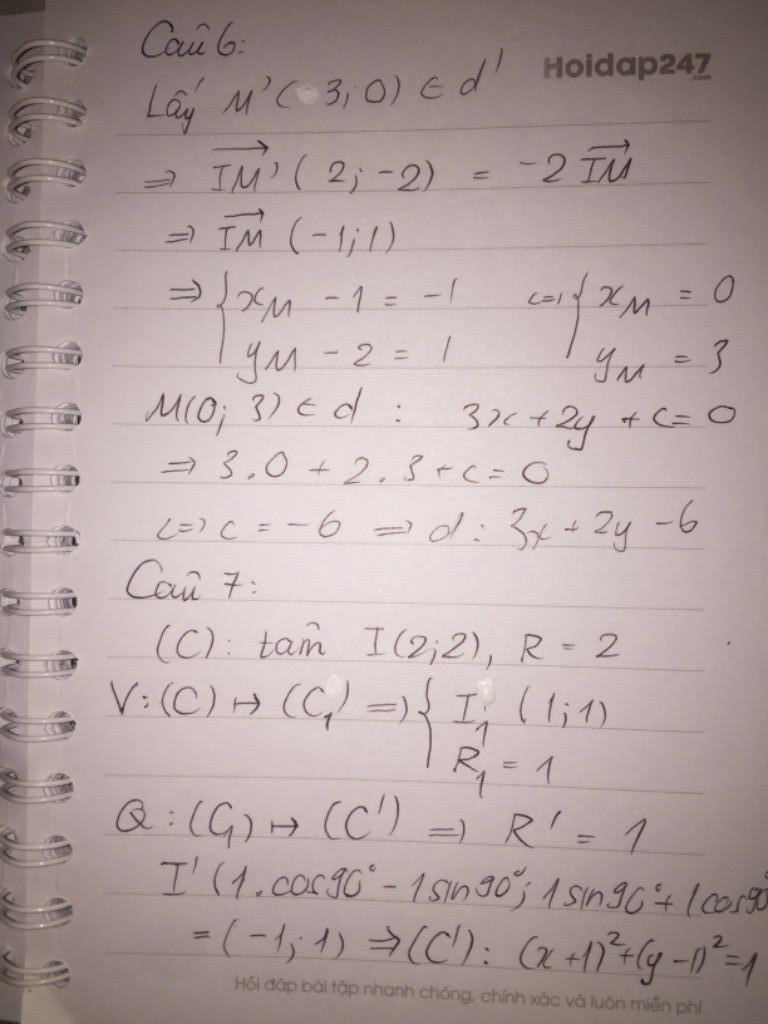 Câu 6:
Hoidap247
.com
Lấy M'( 3; 0) ∈ d'
⇒ IM⃗' ( 2; -2) = -2 IM⃗
⇒ IM⃗ (-1; 1)
⇒ { xM - 1 = -1 <=> { xM = 0
yM - 2 = 1 yM = 3
M(0; 3) ∈ d : 3x + 2y + c = 0
⇒ 3.0 + 2.3 + c = 0
<=> c = -6 ⇒ d : 3x + 2y - 6
Câu 7:
(C) : tâm I(2;2), R = 2
V : (C) ↦ (C₁) => { I₁ (1; 1)
R₁ = 1
Q : (C₁) ↦ (C') => R' = 1
I' (1.cos90° - 1sin90°; 1sin90° + 1cos90°
= (-1; 1) ⇒ (C') : (x + 1)² + (y - 1)² = 1
Hỏi đáp bài tập nhanh chóng, chính xác và luôn miễn phí